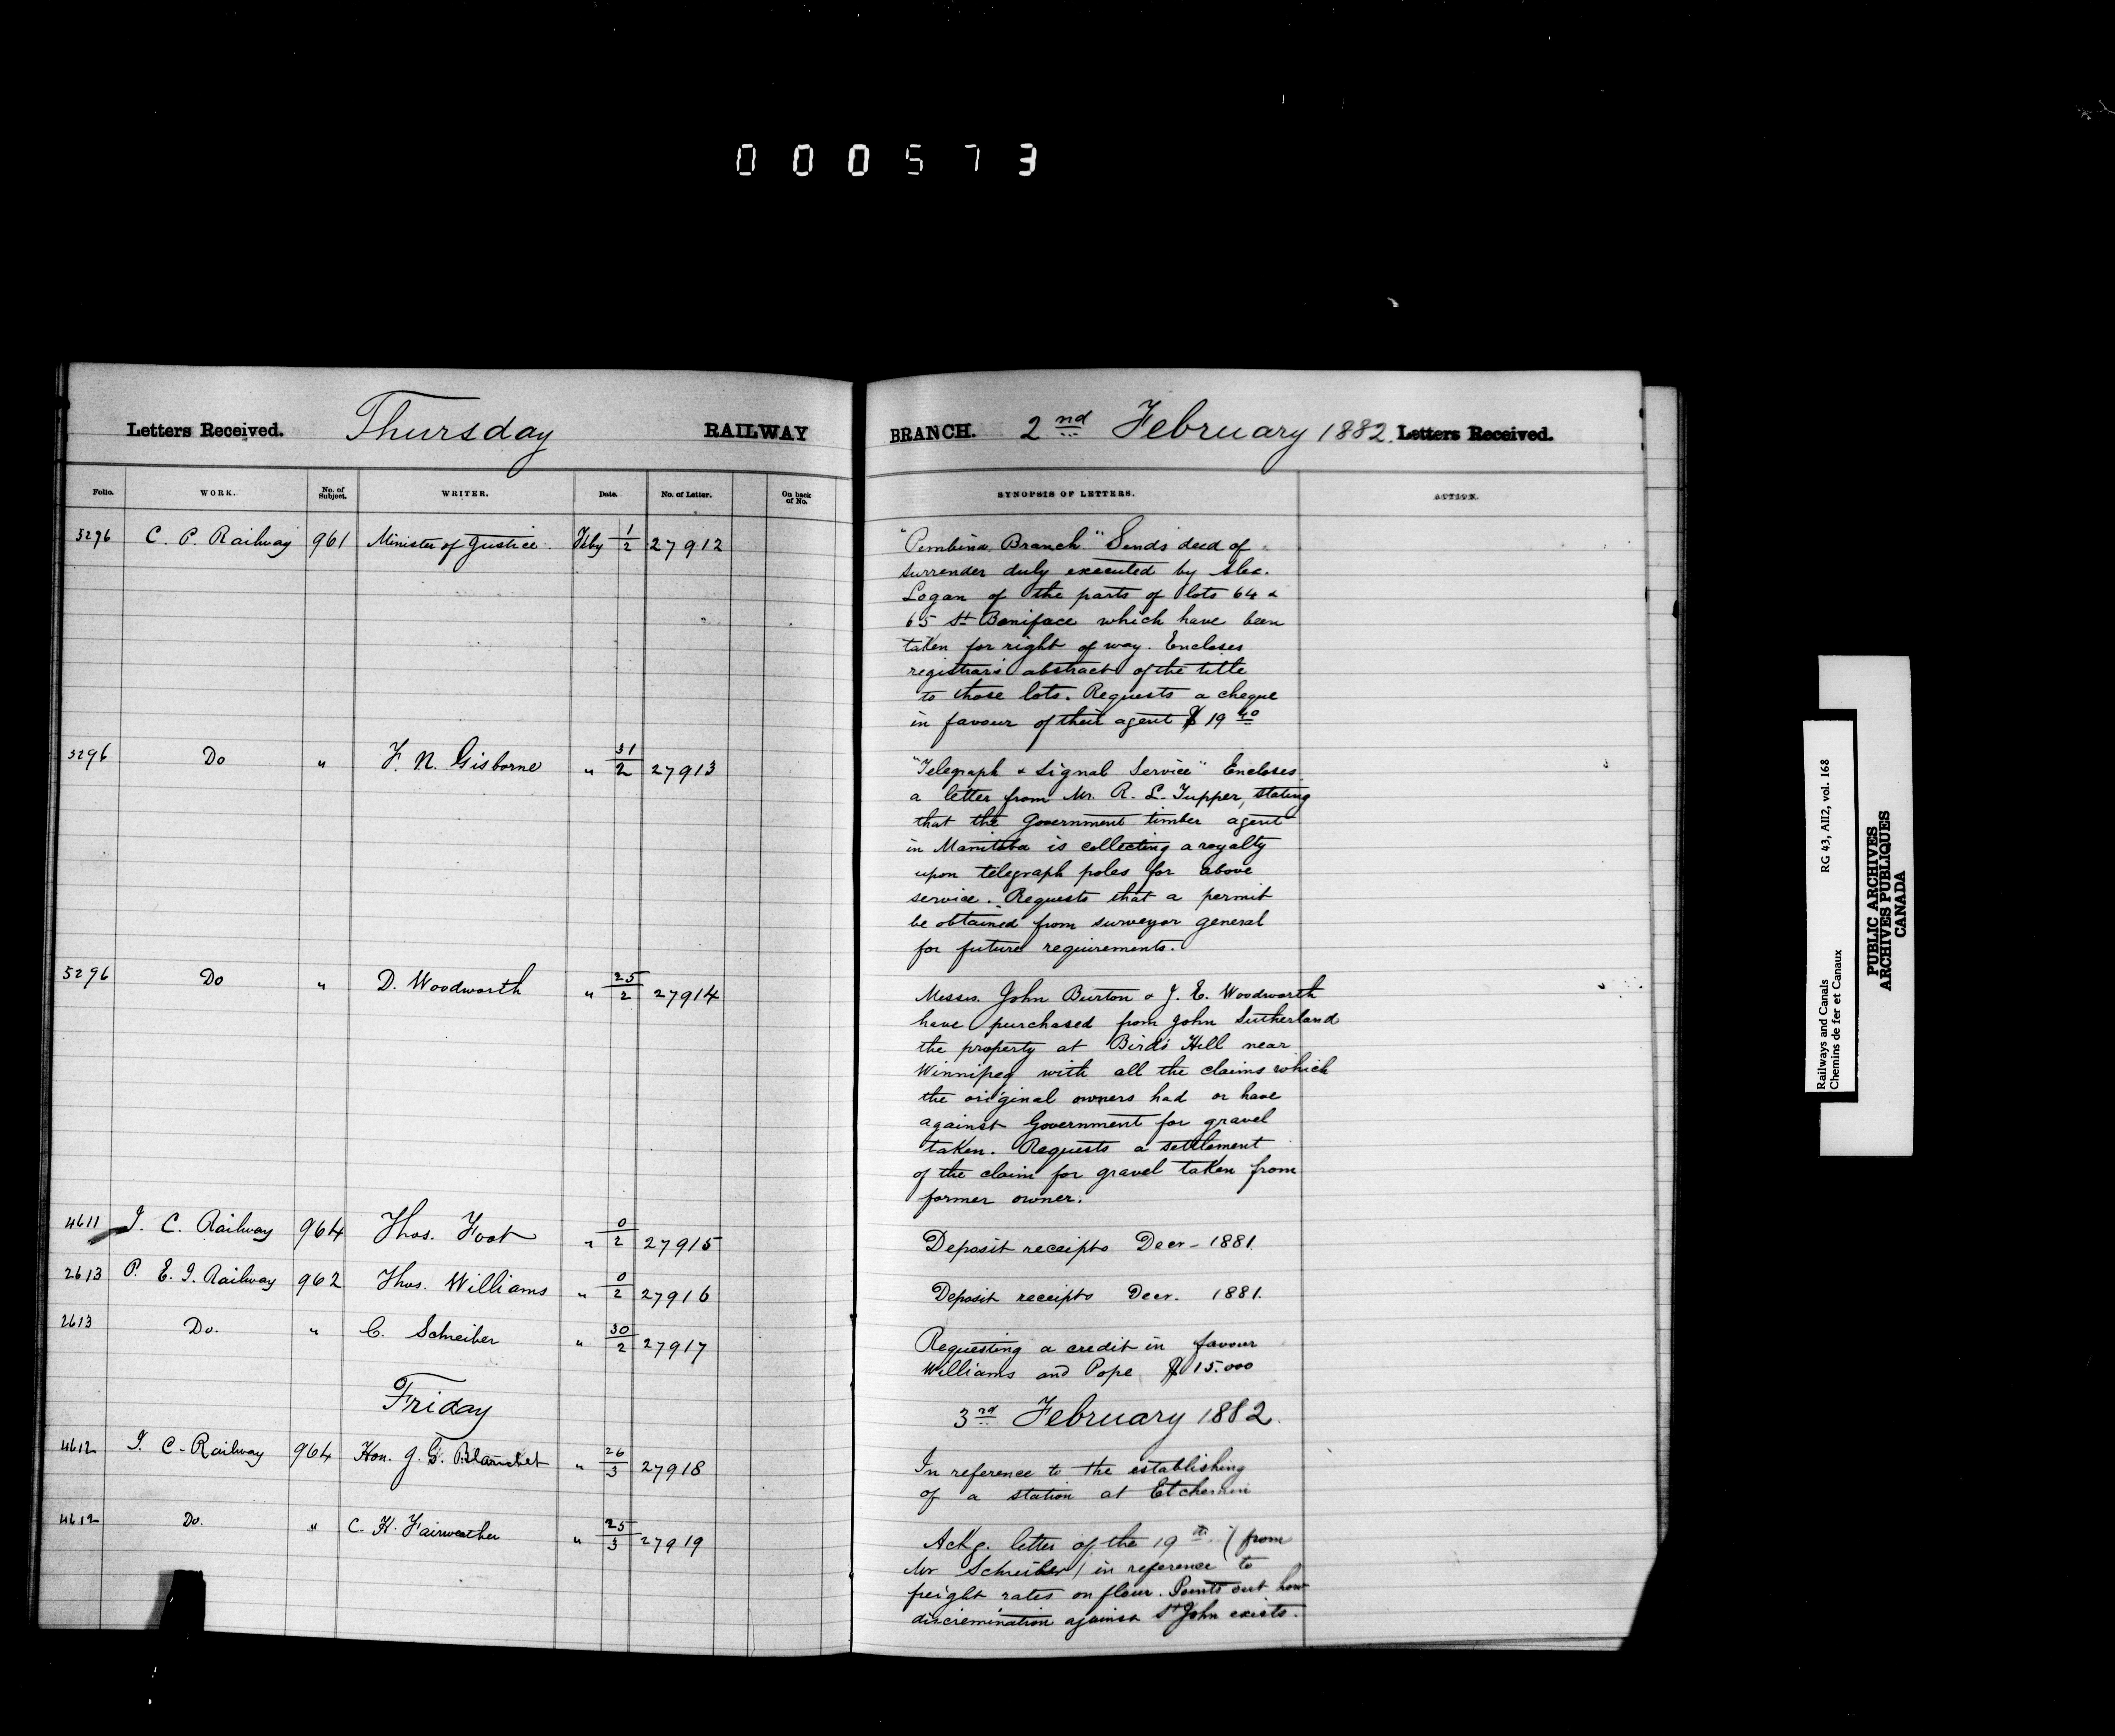 000573
Letters Received. Thursday RAILWAY BRANCH. 2nd February 1882. Letters Received.
Folio. WORK. No. of Subject. WRITER. Date. No. of Letter. On back of No. SYNOPSIS OF LETTERS. ACTION.
5296 C. P. Railway 961 Minister of Justice. Feby 1/2 27912 "Pembina Branch" Sends deed of
surrender duly executed by Alex.
Logan of the parts of lots 64 &
65 St Boniface which have been
taken for right of way. Encloses
registrar's abstract of the title
to those lots. Requests a cheque
in favour of their agent $19 40
5296 Do " F. N. Gisborne " 31/2 27913 "Telegraph & Signal Service" Encloses
a letter from Mr. R. L. Tupper, stating
that the Government timber agent
in Manitoba is collecting a royalty
upon telegraph poles for above
service. Requests that a permit
be obtained from surveyor general
for future requirements.
5296 Do " D. Woodworth " 25/2 27914 Messrs. John Burton & J. E. Woodworth
have purchased from John Sutherland
the property at Bird's Hill near
Winnipeg with all the claims which
the original owners had or have
against Government for gravel
taken. Requests a settlement
of the claim for gravel taken from
former owner.
4611 I. C. Railway 964 Thos. Foot " 0/2 27915 Deposit receipts Decr - 1881.
2613 P. E. I. Railway 962 Thos. Williams " 0/2 27916 Deposit receipts Decr. 1881.
2613 Do. " C. Schreiber " 30/2 27917 Requesting a credit in favour
Williams and Pope $15.000
Friday 3rd February 1882.
4612 I. C. Railway 964 Hon. J. G. Blanchet " 26/3 27918 In reference to the establishing
of a station at Etchemin
4612 Do. " C. H. Fairweather " 25/3 27919 Ackg. letter of the 19th (from
Mr Schreiber) in reference to
freight rates on flour. Points out how
discremination against St John exists.
Railways and Canals RG 43, AII2, vol. 168
Chemins de fer et Canaux
PUBLIC ARCHIVES
ARCHIVES PUBLIQUES
CANADA